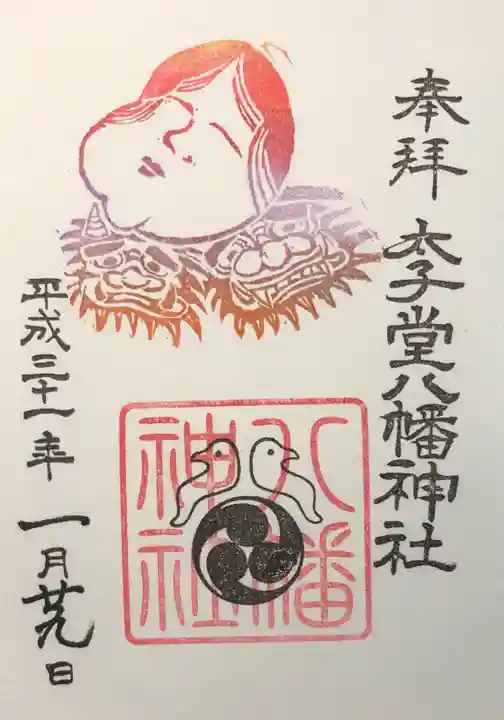 奉拝
太子堂八幡神社
八幡
神社
平成三十一年一月廿九日